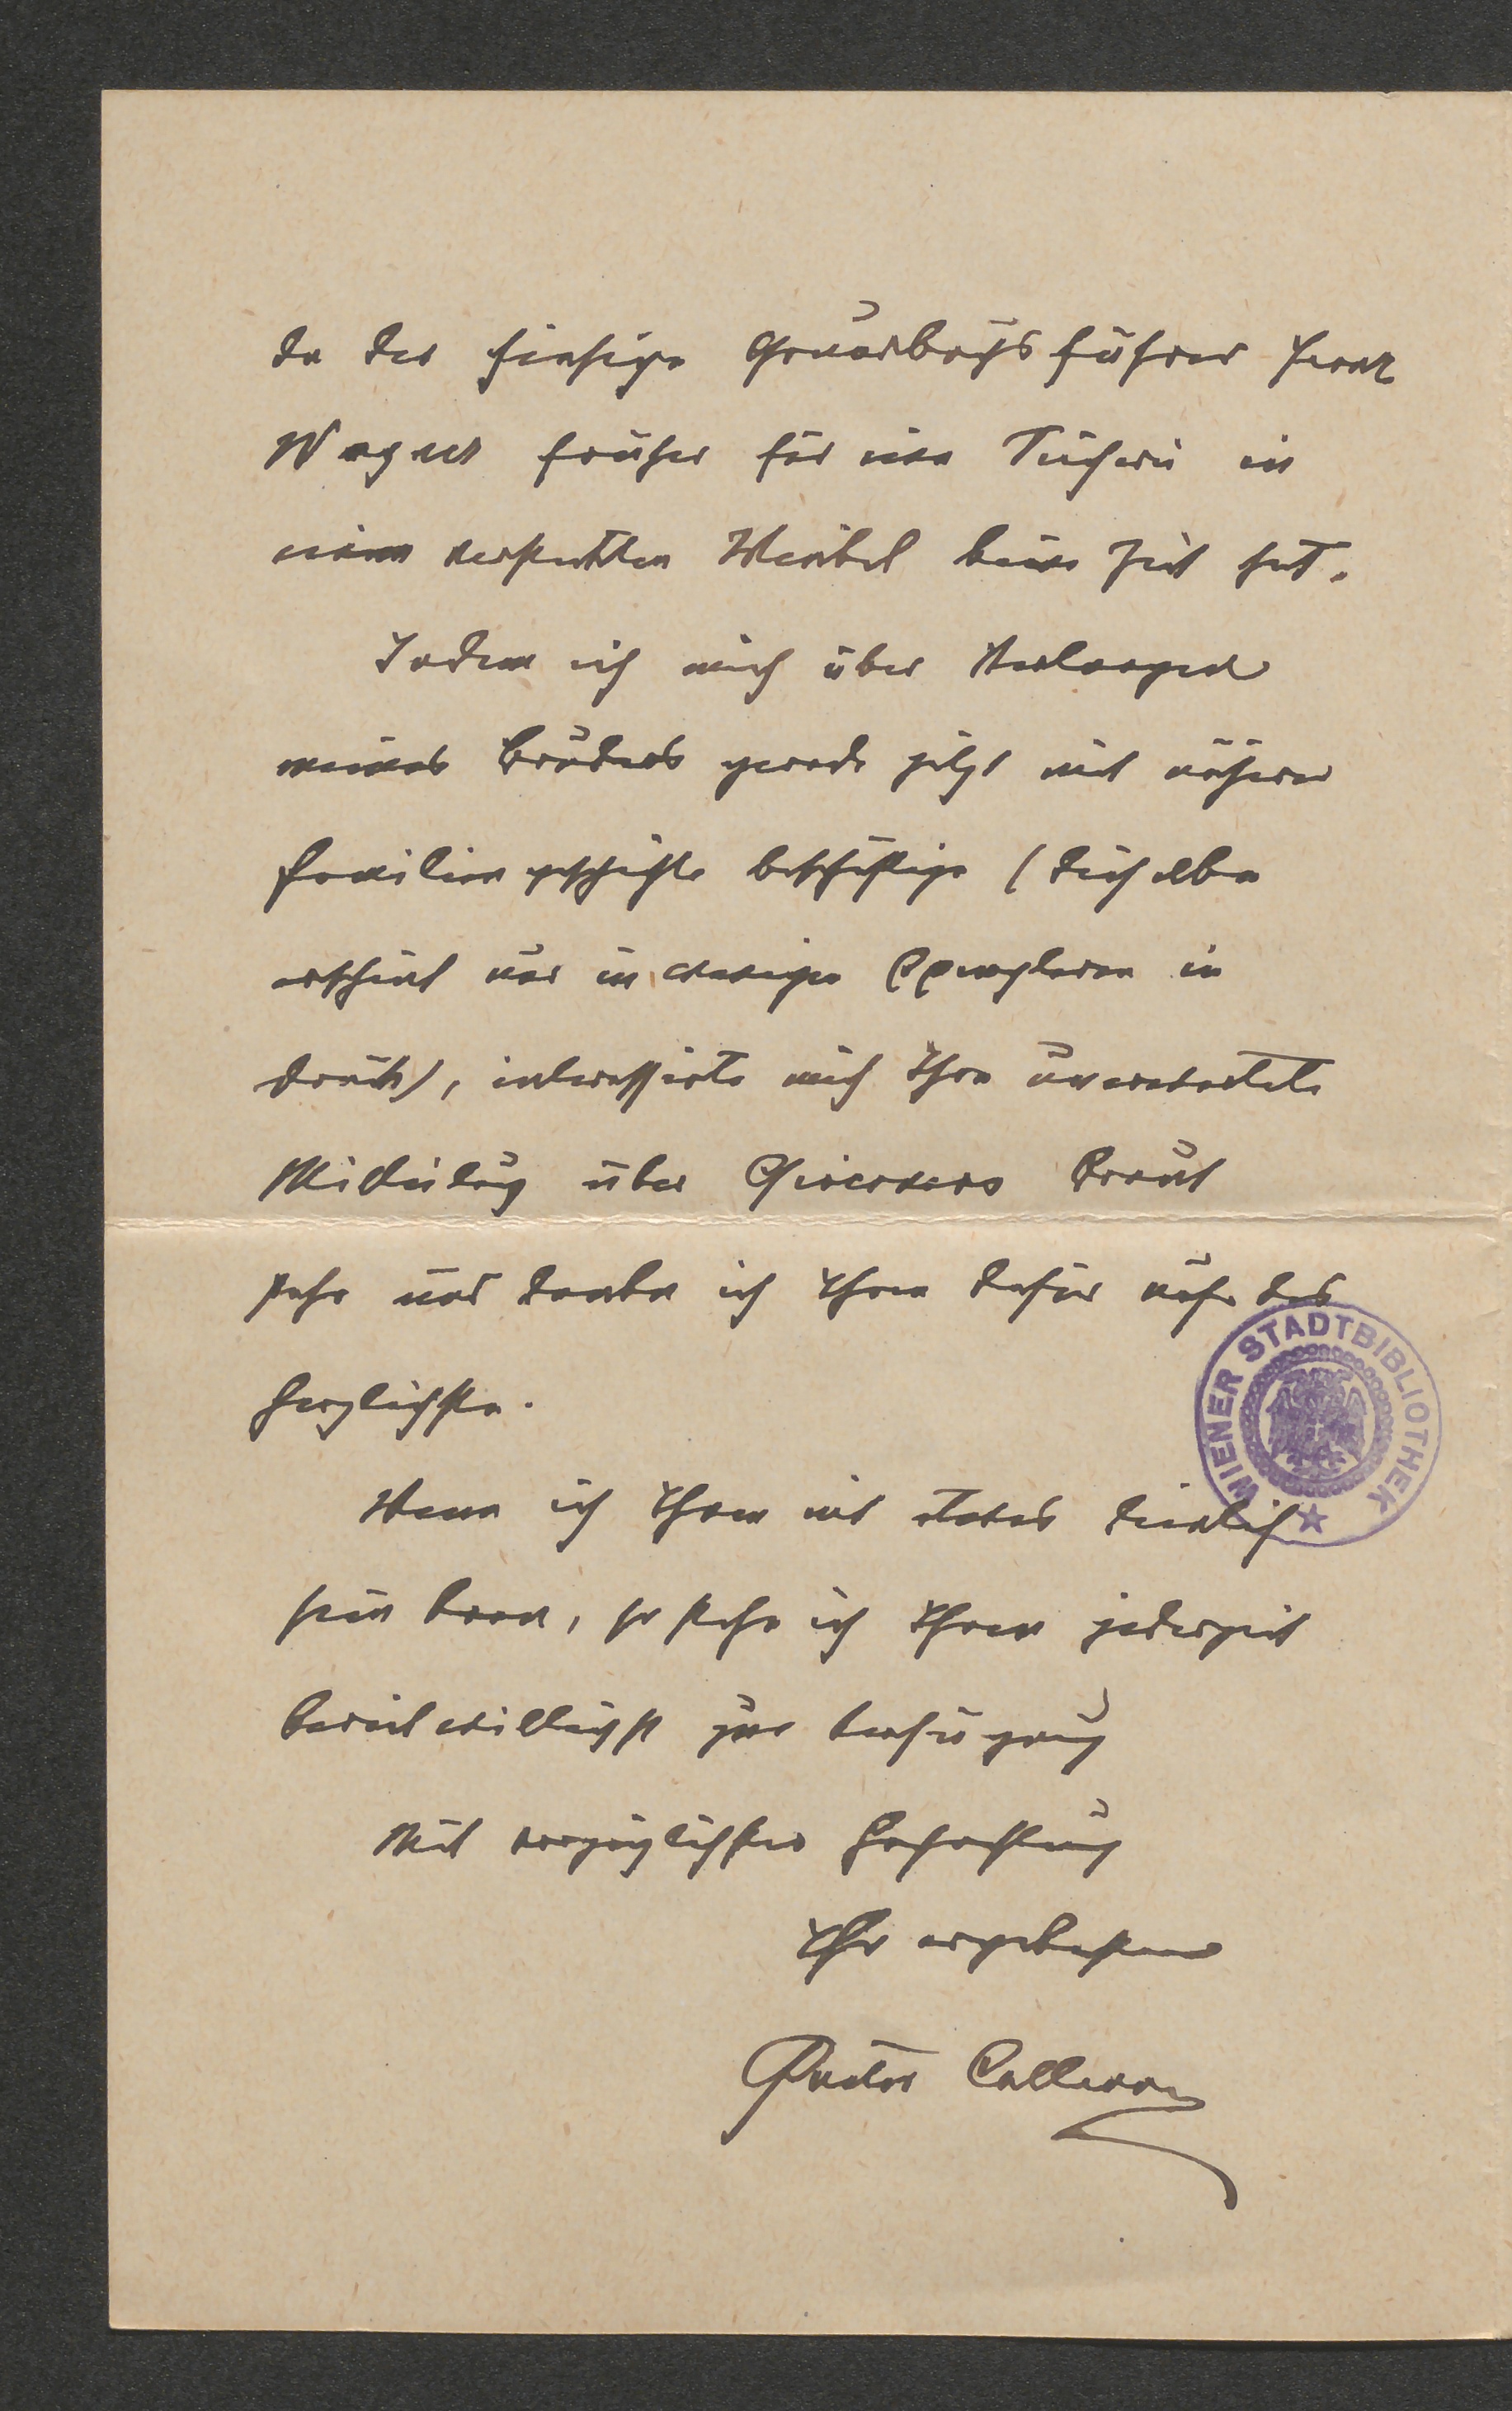 da der hiesige Grundbuchsführer Herr
Wagner früher für eine Sucherei in
einem verstaubten Winkel keine Zeit hat.
Indem ich mich über Verlangen
meines Bruders gerade jetzt mit unserer
Familiengeschichte beschäftige (dieselbe
erscheint nur in wenigen Exemplaren in
Druck), interessierte mich Ihre unerwartete
Mitteilung über Braut
sehr und danke ich Ihnen dafür aufs
herzlichste.
Wenn ich Ihnen mit etwas dienlich
sein kann, so stehe ich Ihnen jederzeit
bereitwilligst zur Verfügung
Mit vorzüglichster Hochachtung
Ihr ergebenster
WIENER STADTBIBLIOTHEK